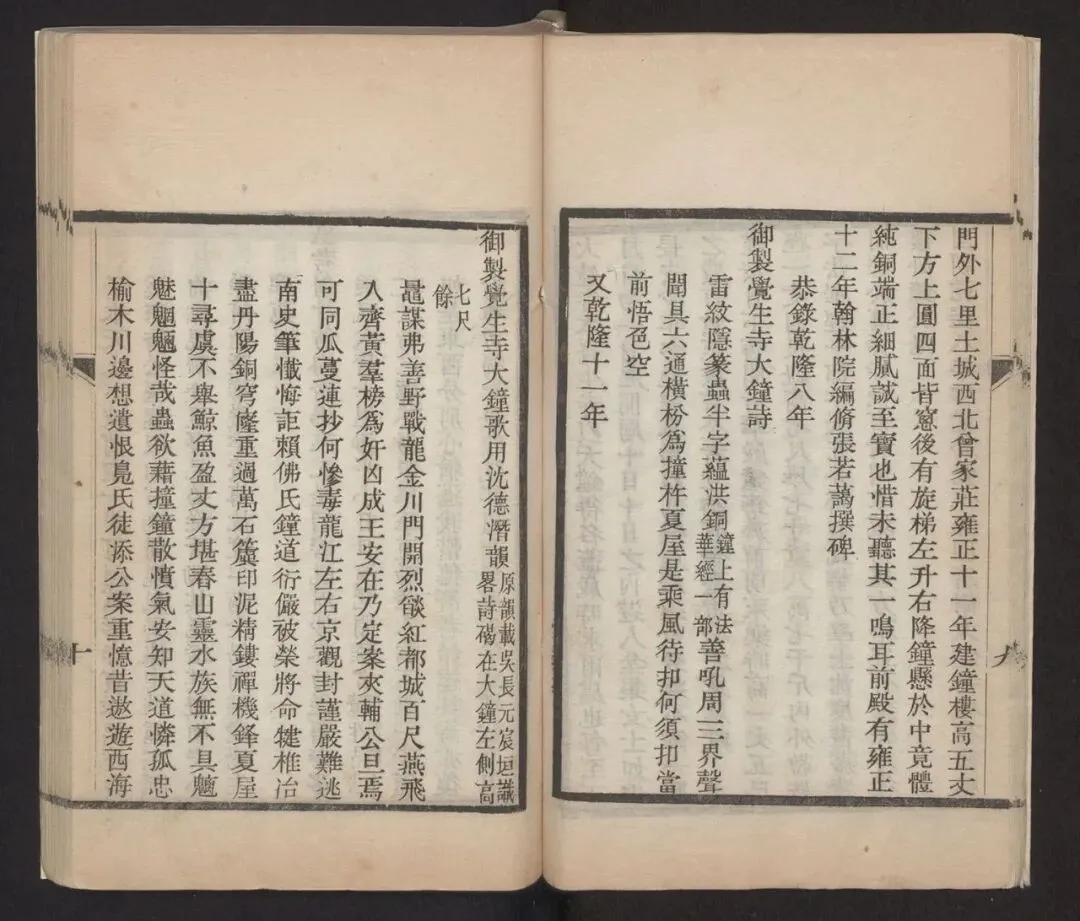 門外七里土城西北曾家莊雍正十一年建鐘樓高五丈
下方上圓四面皆窻後有旋梯左升右降鐘懸於中竟體
純銅端正細膩誠至寶也惜未聽其一鳴耳前殿有雍正
十二年翰林院編脩張若藹撰碑
恭錄乾隆八年
御製覺生寺大鐘詩
雷紋隱篆蟲半字蘊洪銅鐘上有法華經一部善吼周三界聲
聞具六通橫枌爲撞杵夏屋是乘風待扣何須扣當
前悟色空
又乾隆十一年
九
御製覺生寺大鐘歌用沈德潛韻原韻載吳長元宸垣識畧詩碣在大鐘左側高
七尺餘
鼂謀弗善野戰龍金川門開烈燄紅都城百尺燕飛
入齊黃羣榜爲奸凶成王安在乃定案夾輔公旦焉
可同瓜蔓連抄何慘毒龍江左右京觀封謹嚴難逃
南史筆懺悔詎賴佛氏鐘道衍儼被榮將命犍椎冶
盡丹陽銅穹窿重過萬石簴印泥精鏤禪機鋒夏屋
十尋虞不舉鯨魚盈丈方堪舂山靈水族無不具魑
魅魍魎怪哉蟲欲藉撞鐘散憤氣安知天道憐孤忠
榆木川邊想遺恨鳧氏徒添公案重憶昔遨遊西海
十